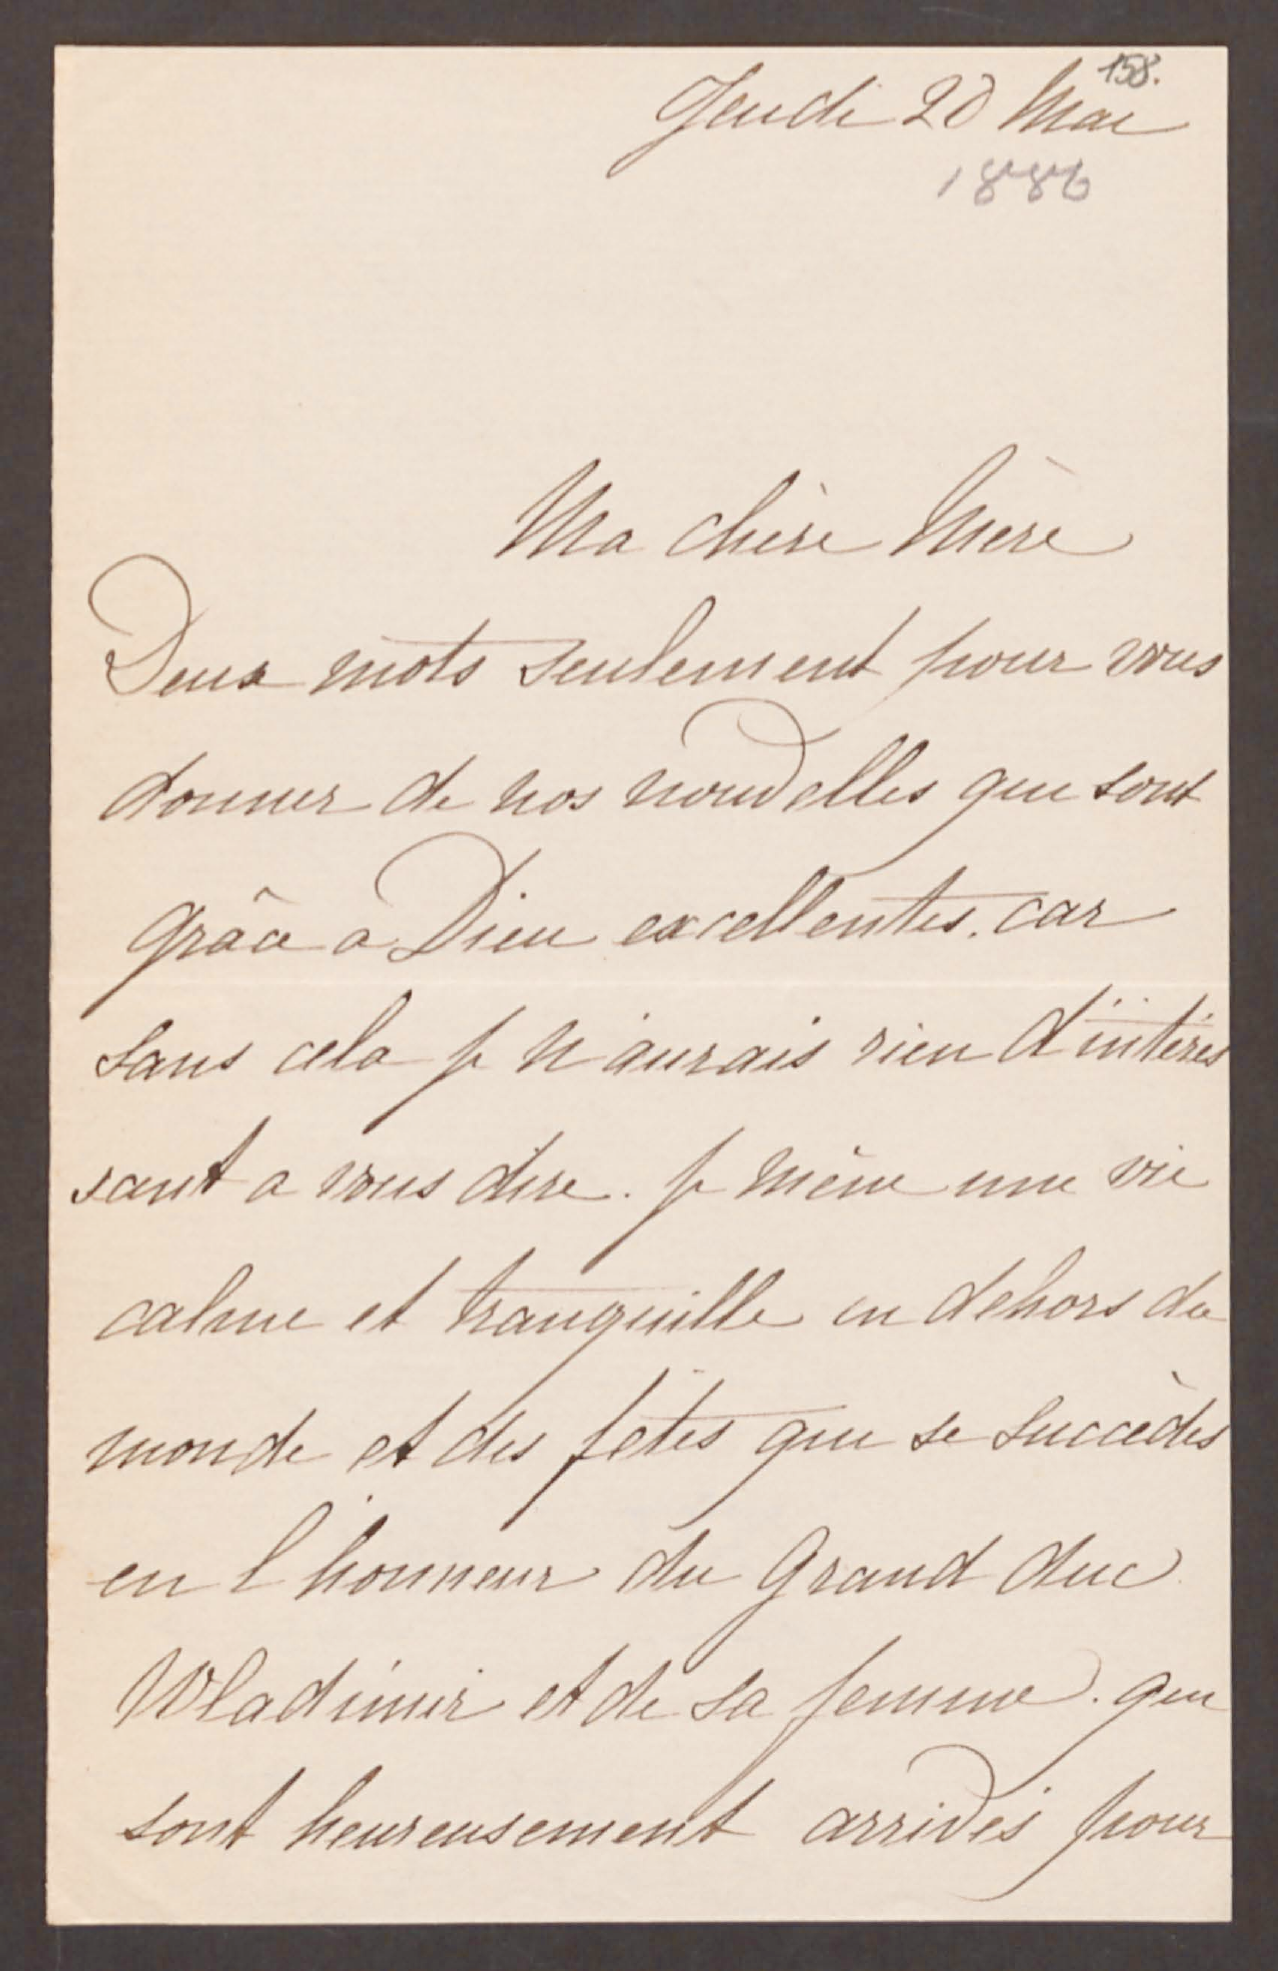 158.
Jeudi 20 Mai
1886
Ma chère Mère
Deux mots seulement pour vous
donner de nos nouvelles qui sont
grâce a Dieu excellentes. car
sans cela je n'aurais rien d'intéres
sant a vous dire. je mène une vie
calme et tranquille en dehors du
monde et des fêtes qui se succèdes
en l'honneur du Grand duc
Wladimir et de sa femme. qui
sont heureusement arrivés pour